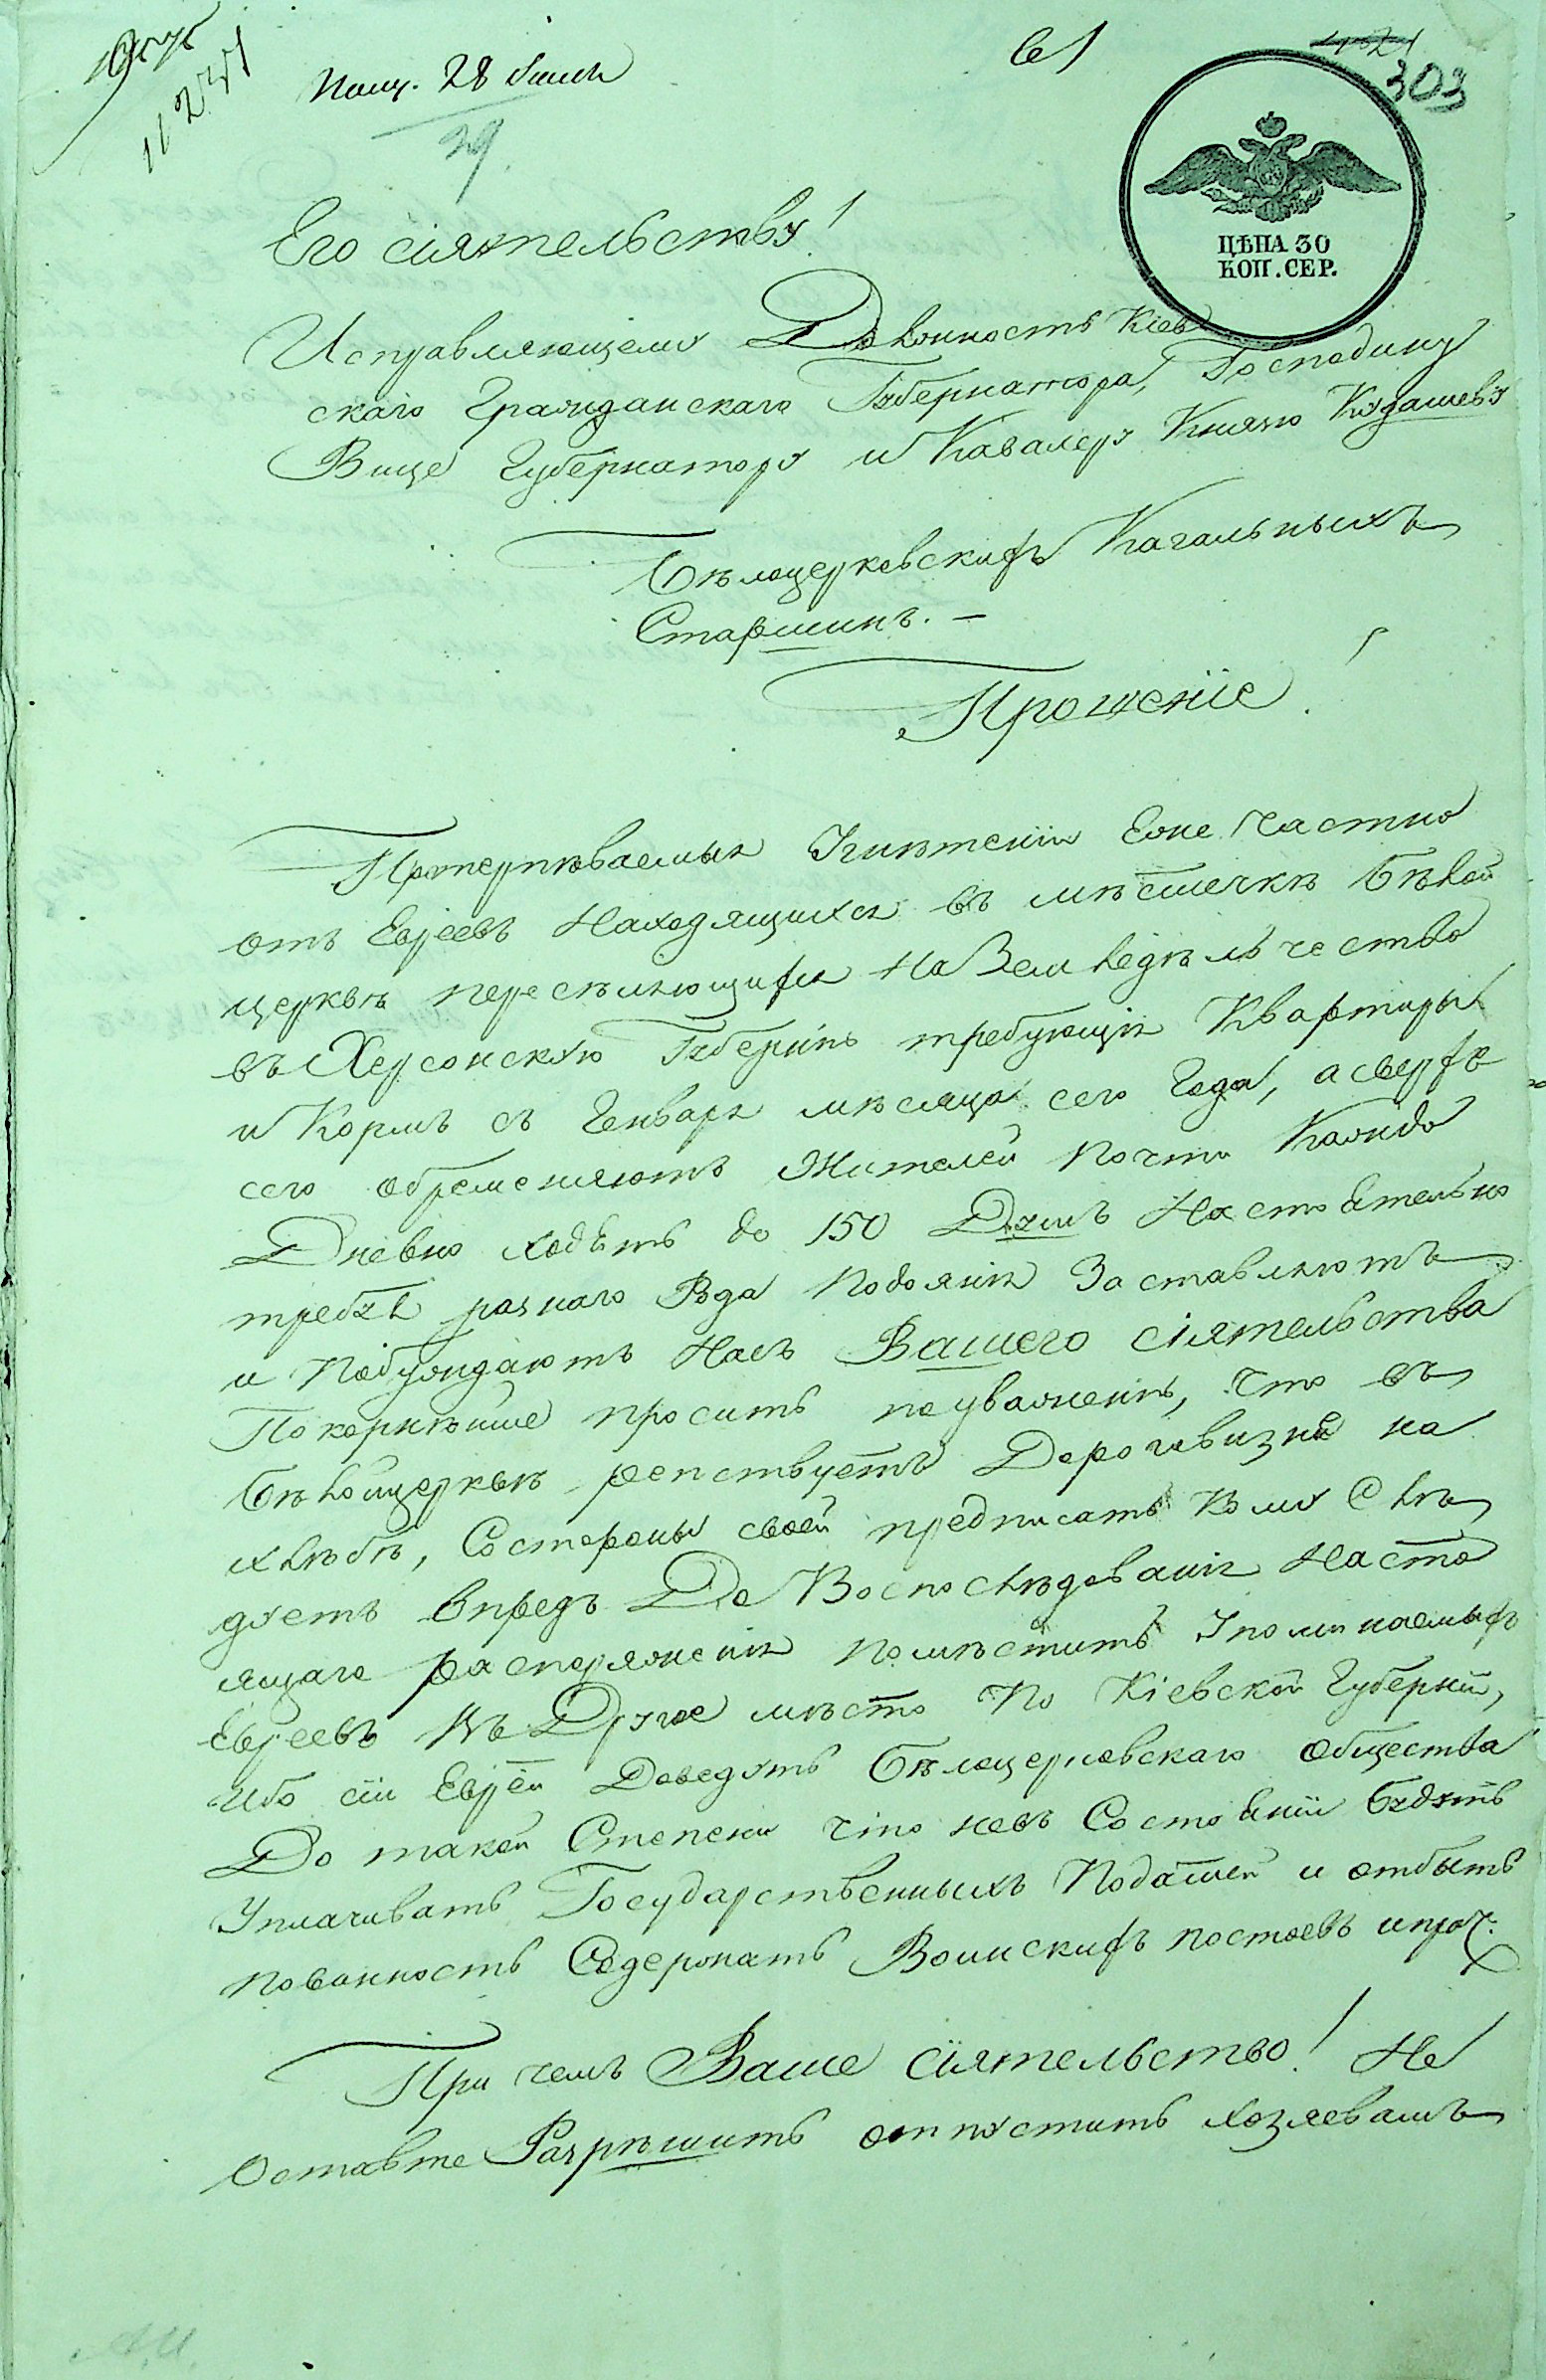 11241
Полу. 28 Іюня
29
421
303
ЦѢНА 30
КОП. СЕР.
Его сіятельству!
Исправляющему Должность Кіев
скаго Гражданскаго Губернатора, Господину
Вице Губернатору и Кавалеру Князю Кудашеву
Бѣлоцерковскихъ Кагальныхъ
Старшинъ. —
Прошеніе!
Протерпѣваемыя Угнѣтеніи Еже Частно
отъ Евреевъ Находящихся въ мѣстечкѣ Бѣлой
церквѣ пересѣляющихся На Земледѣльчество
въ Херсонскую Губернію требующія Квартиры
и Кормъ съ Генваря мѣсяца сего Года, а сверхъ
сего обременяютъ Жителей Почти Каждо
Дневно ходять до 150 Душъ Настоятельно
требуя разнаго Рода Подоянія Заставляютъ
и Побуждаютъ Насъ Вашего сіятельства
Покорнѣйше просить поуваженію, что въ
Бѣлойцерквѣ Дороговизна на
хлѣбъ, Состороны своей предписать Кому Слѣ
дуетъ впредь До Воспослѣдованія Насто
ящаго распоряженія помѣстить Упоминаемыхъ
Евреевъ Въ Другое мѣсто По Кіевской Губерніи,
ибо сіи Евреи Доведутъ Бѣлоцерковскаго общества
До такой Степени что невъ Состояніи Будутъ
Уплачивать Государственныхъ Податей и отбыть
повинность Содержать Воинскихъ постоевъ ипроч.
При чемъ Ваше сіятельство! Не
Оставте Разрѣшить отпустить хозяевамъ